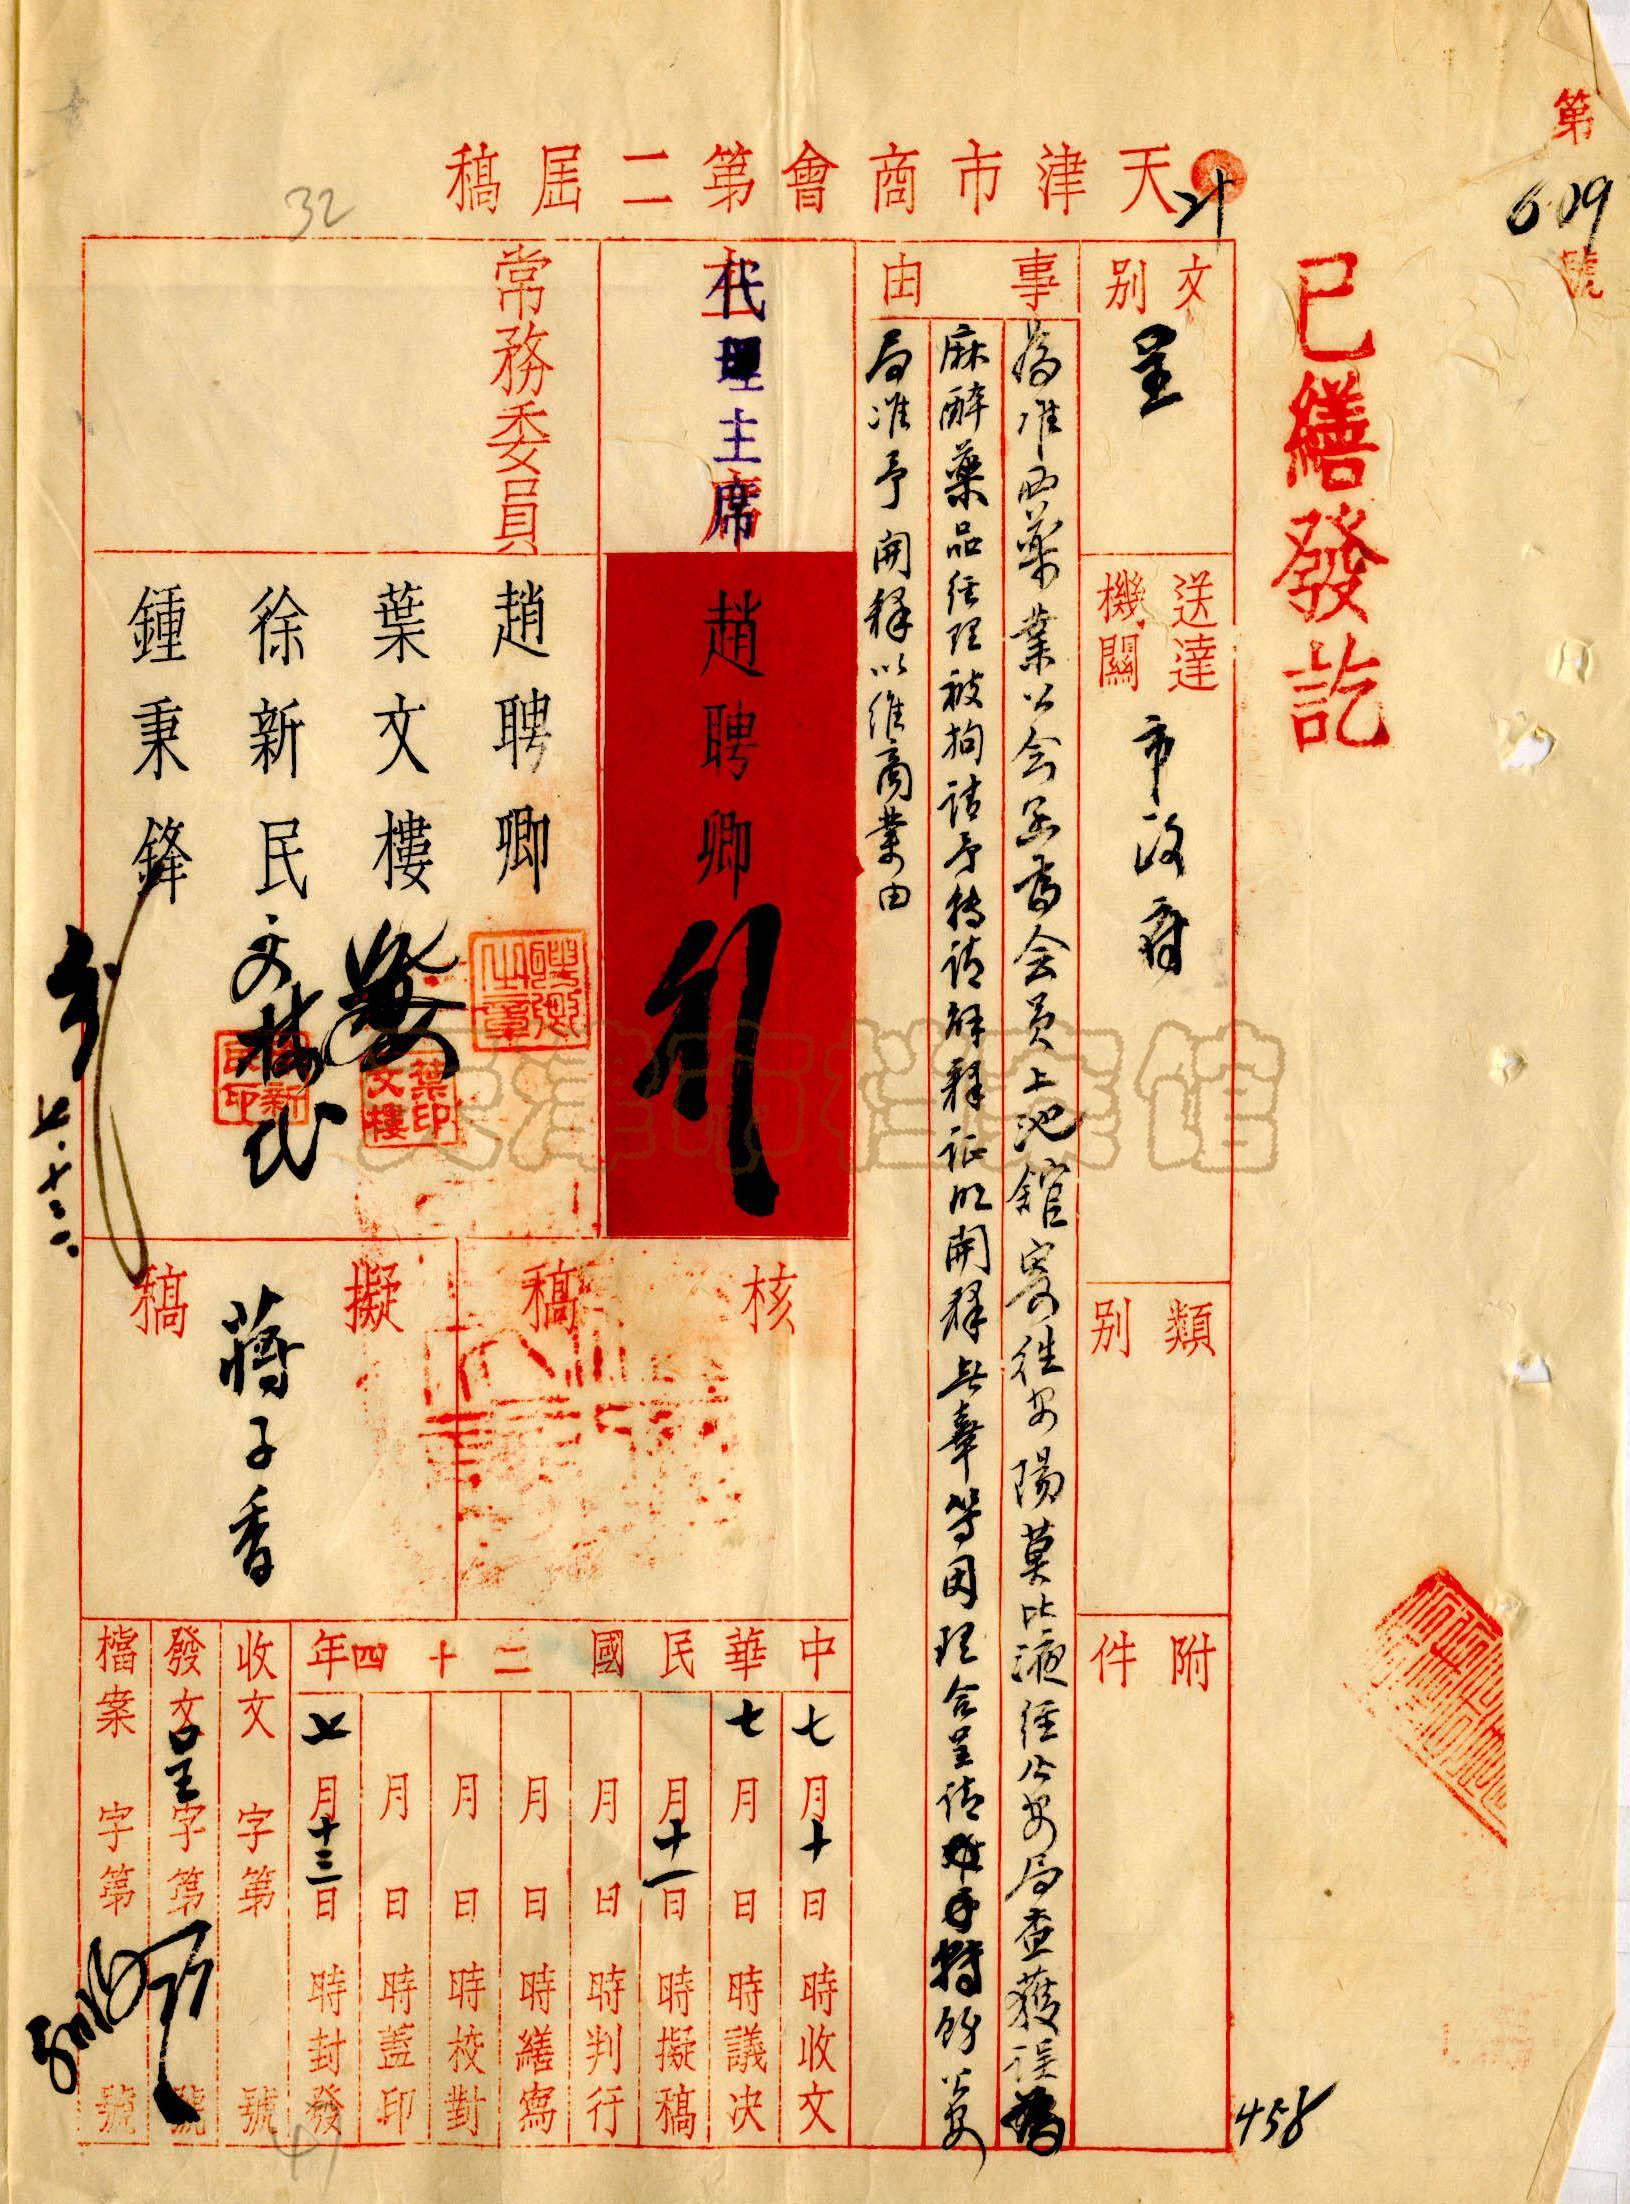 第
609
號
已繕發訖
天津市商會第二屆稿
32
文別
呈
送達機關
市政府
類別
附件
事由
為准西藥業公会函為会員上池館寄往安陽莫比液経公安局查獲誤為
麻醉藥品経理被拘請予轉請解釋証明開釋無辜等因理合呈請 轉飭公安
局准予開釋以維商業由
代理主席
趙聘卿
行
常務委員
趙聘卿
葉文樓
徐新民
鍾秉鋒
聘卿之章
葉文樓印
七.十三.
核稿
擬稿
蔣子香
中華民國二十四年
七月十日 時收文
七月 日 時議決
月十一日 時擬稿
月 日 時判行
月 日 時繕寫
月 日 時校對
月 日 時蓋印
七月十三日 時封發
收文 字第 號
發文呈字第 號
檔案 字第 號
458
天津市档案馆